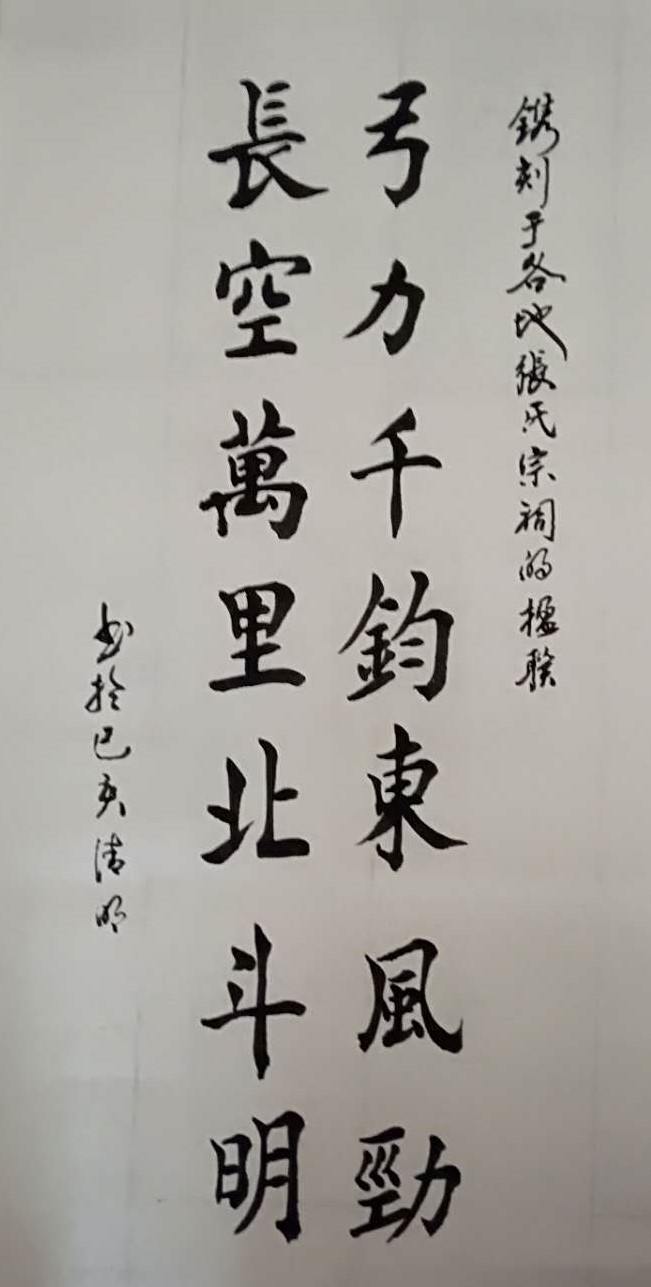 鐫刻于各地張氏宗祠的楹聯
弓力千鈞東風勁
長空萬里北斗明
书於己亥清明